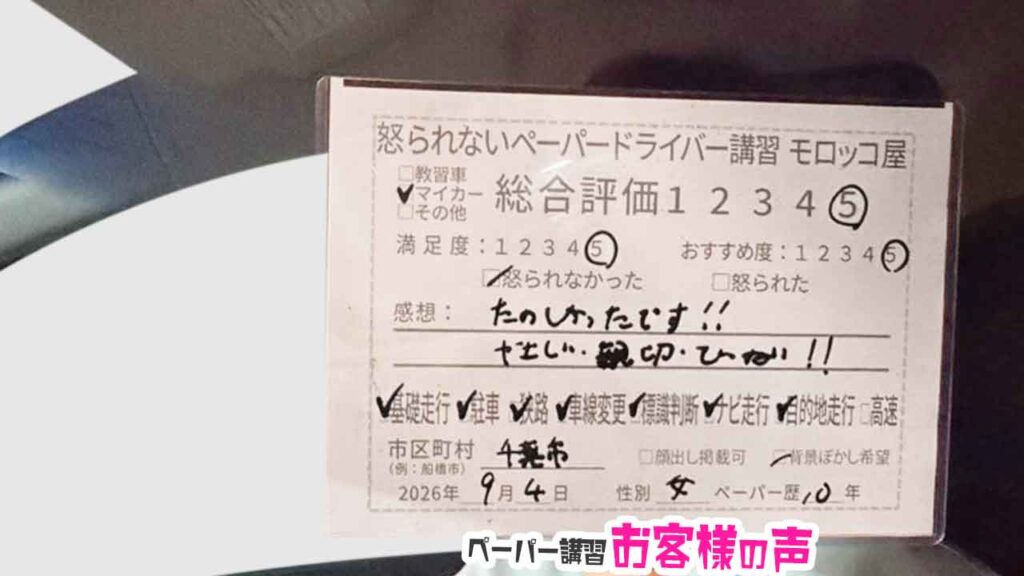 怒られないペーパードライバー講習 モロッコ屋
□教習車
✓マイカー
□その他
総合評価 1 2 3 4 ⑤
満足度：1 2 3 4 ⑤ おすすめ度：1 2 3 4 ⑤
☑怒られなかった □怒られた
感想： たのしかったです!!
やさしい・親切・
✓基礎走行 ✓駐車 ✓狭路 ✓車線変更 ✓標識判断 ✓ナビ走行 ✓目的地走行 □高速
市区町村 千葉市 □顔出し掲載可 ☑背景ぼかし希望
(例：船橋市)
2026年 9月 4日 性別 女 ペーパー歴 10年
ペーパー講習 お客様の声